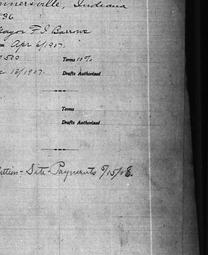 nnersville, Indiana
96.
Mayor F. I. Barrows
Apr 6/1917.
Terms 10%
12/1917.
Drafts Authorized
Terms
Drafts Authorized
Site Payments 5/15/08